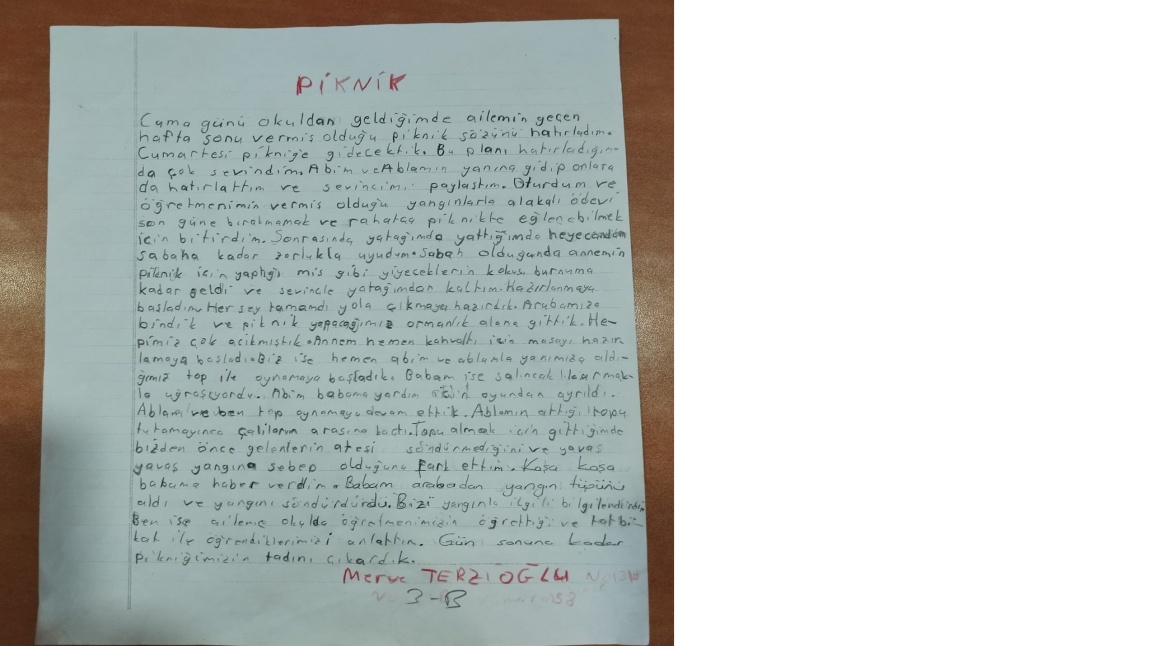 PİKNİK
Cuma günü okuldan geldiğimde ailemin geçen
hafta sonu vermis olduğu piknik sözünü hatırladım.
Cumartesi pikniğe gidecektik. Bu planı hatırladığım-
da çok sevindim. Abim ve Ablamın yanına gidip onlara
da hatırlattım ve sevincimi paylaştım. Oturdum ve
öğretmenimin vermis olduğu yangınlarla alakalı ödevi
son güne bırakmamak ve rahatça piknikte eğlenebilmek
için bitirdim. Sonrasında yatağımda yattığımda heyecandan
sabaha kadar zorlukla uyudum. Sabah olduğunda annemin
piknik için yaptığı mis gibi yiyeceklerin kokusu burnuma
kadar geldi ve sevincle yatağımdan kalktım. Hazırlanmaya
başladım. Her sey tamamdı yola çıkmaya hazırdık. Arabamıza
bindik ve piknik yapacağımız ormanlık alana gittik. He-
pimiz çok acıkmıştık. Annem hemen kahvaltı için masayı hazır
lamaya başladı. Biz ise hemen abim ve ablamla yanımıza aldı-
ğımız top ile oynamaya başladık. Babam ise salıncak kurmak-
la uğraşıyordu. Abim babama yardım için oyundan ayrıldı.
Ablam ve ben top oynamaya devam ettik. Ablamın attığı topu
tutamayınca çalıların arasına kaçtı. Topu almak için gittiğimde
bizden önce gelenlerin atesi söndürmediğini ve yavaş
yavaş yangına sebep olduğunu fark ettim. Koşa koşa
babama haber verdim. Babam arabadan yangın tüpünü
aldı ve yangını söndürdürdü. Bizi yangınla ilgili bilgilendirdi.
Ben ise aileme okulda öğretmenimizin öğrettiği ve tatbi-
kat ile öğrendiklerimizi anlattım. Gün sonuna kadar
pikniğimizin tadını çıkardık.
Merve TERZİOĞLU
3-B